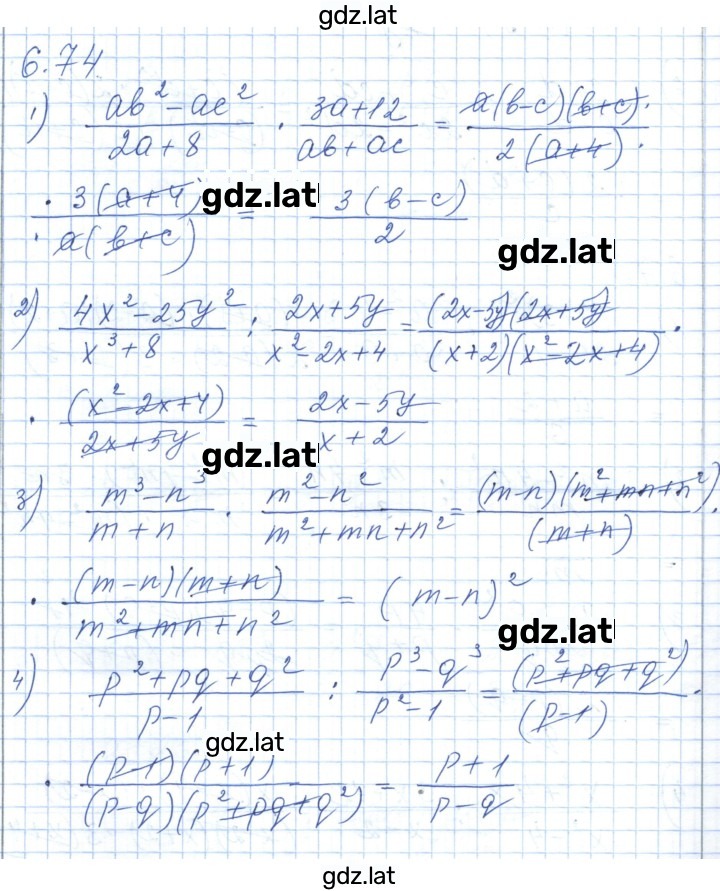 gdz.lat
6.74
1) (ab² - ac²)/(2a + 8) · (3a + 12)/(ab + ac) = a(b - c)(b + c) · / 2(a + 4) ·
· 3(a + 4) / · a(b + c) = 3(b - c)/2
gdz.lat
gdz.lat
2) (4x² - 25y²)/(x³ + 8) : (2x + 5y)/(x² - 2x + 4) = (2x - 5y)(2x + 5y)/((x + 2)(x² - 2x + 4)) ·
· (x² - 2x + 4)/(2x + 5y) = (2x - 5y)/(x + 2)
gdz.lat
3) (m³ - n³)/(m + n) · (m² - n²)/(m² + mn + n²) = (m - n)(m² + mn + n²)/(m + n) ·
· (m - n)(m + n)/(m² + mn + n²) = (m - n)²
gdz.lat
4) (p² + pq + q²)/(p - 1) : (p³ - q³)/(p² - 1) = (p² + pq + q²)/(p - 1) ·
gdz.lat
· (p - 1)(p + 1)/((p - q)(p² + pq + q²)) = (p + 1)/(p - q)
gdz.lat